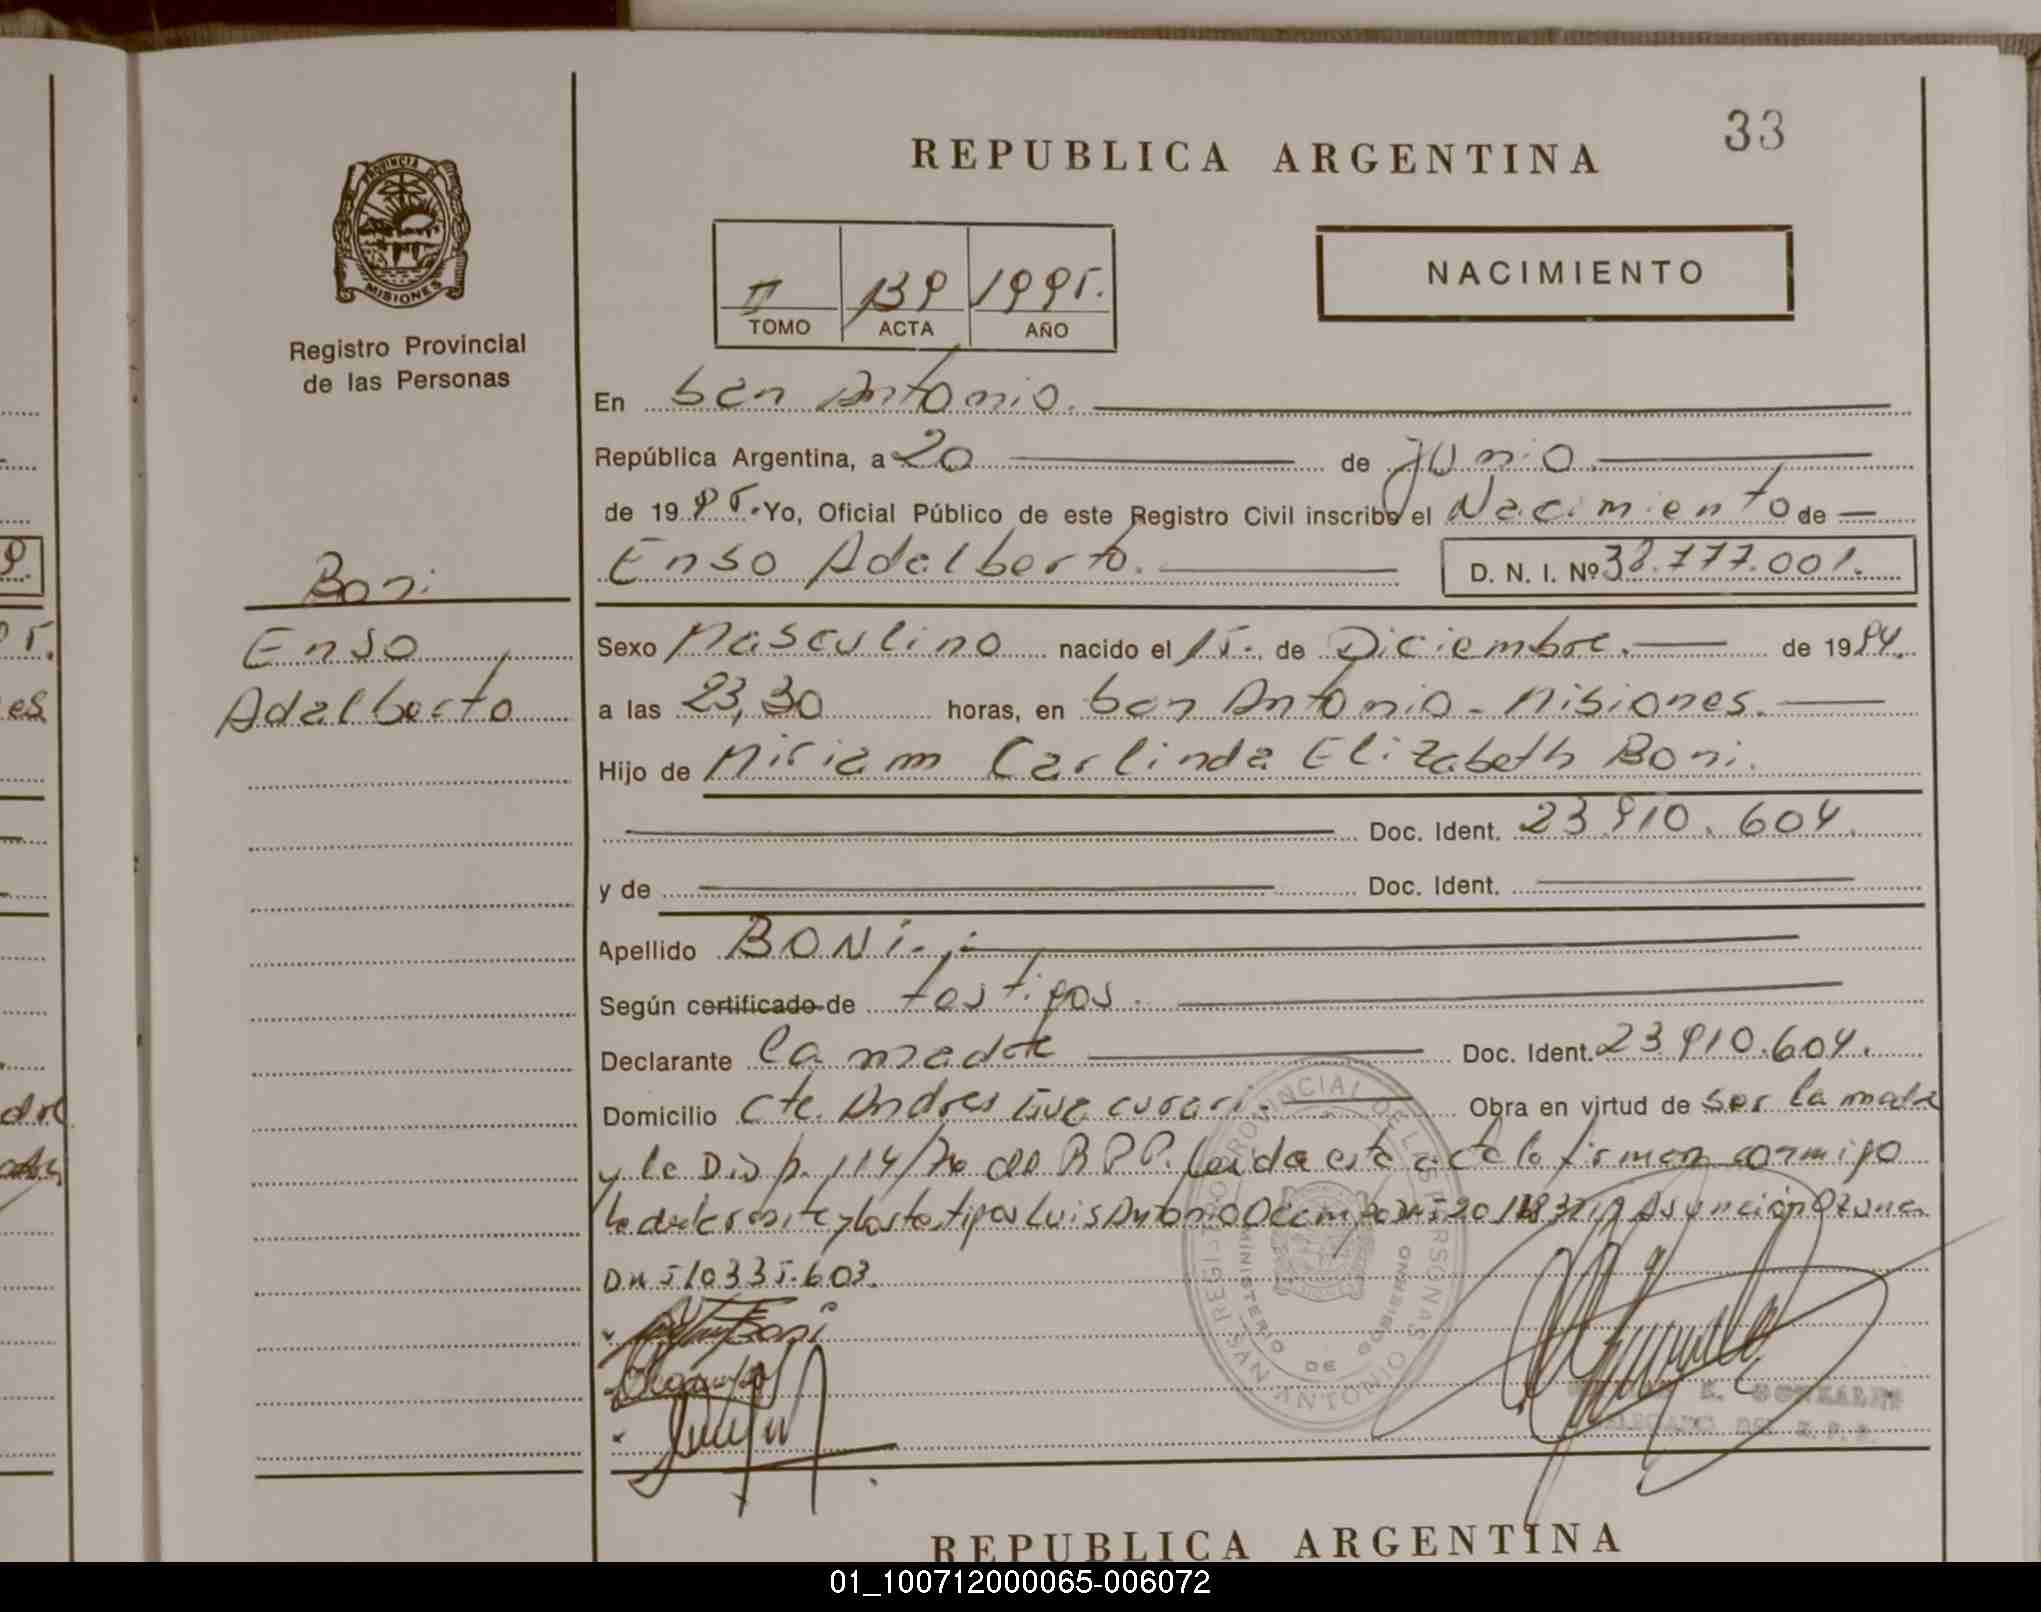 33
REPUBLICA ARGENTINA
PROVINCIA DE
MISIONES
Registro Provincial
de las Personas
II 139 1995.
TOMO ACTA AÑO
NACIMIENTO
En San Antonio.
República Argentina, a 20 de Junio
de 19 95. Yo, Oficial Público de este Registro Civil inscribo el Nacimiento de
Enso Adalberto. D. N. I. Nº 38.777.001.
Boni
Enso
Adalberto
Sexo Masculino nacido el 15. de Diciembre. de 1994.
a las 23,30 horas, en San Antonio - Misiones.
Hijo de Miriam Carlinda Elizabeth Boni.
Doc. Ident. 23.910.604.
y de Doc. Ident.
Apellido BONi.
Según certificado de testigos.
Declarante la madre Doc. Ident. 23.910.604.
Domicilio Cte. Andres Guacurari. Obra en virtud de ser la madre
y la Disp. 114/70 del R.P.P. Leida esta acta la firman conmigo
la declarante y los testigos Luis Antonio Ocampo Asunción Ozuna
DNI 10.335.603.
Boni
REGISTRO PROVINCIAL DE LAS PERSONAS
MINISTERIO DE GOBIERNO
SAN ANTONIO
GONZALEZ
REPUBLICA ARGENTINA
01_100712000065-006072